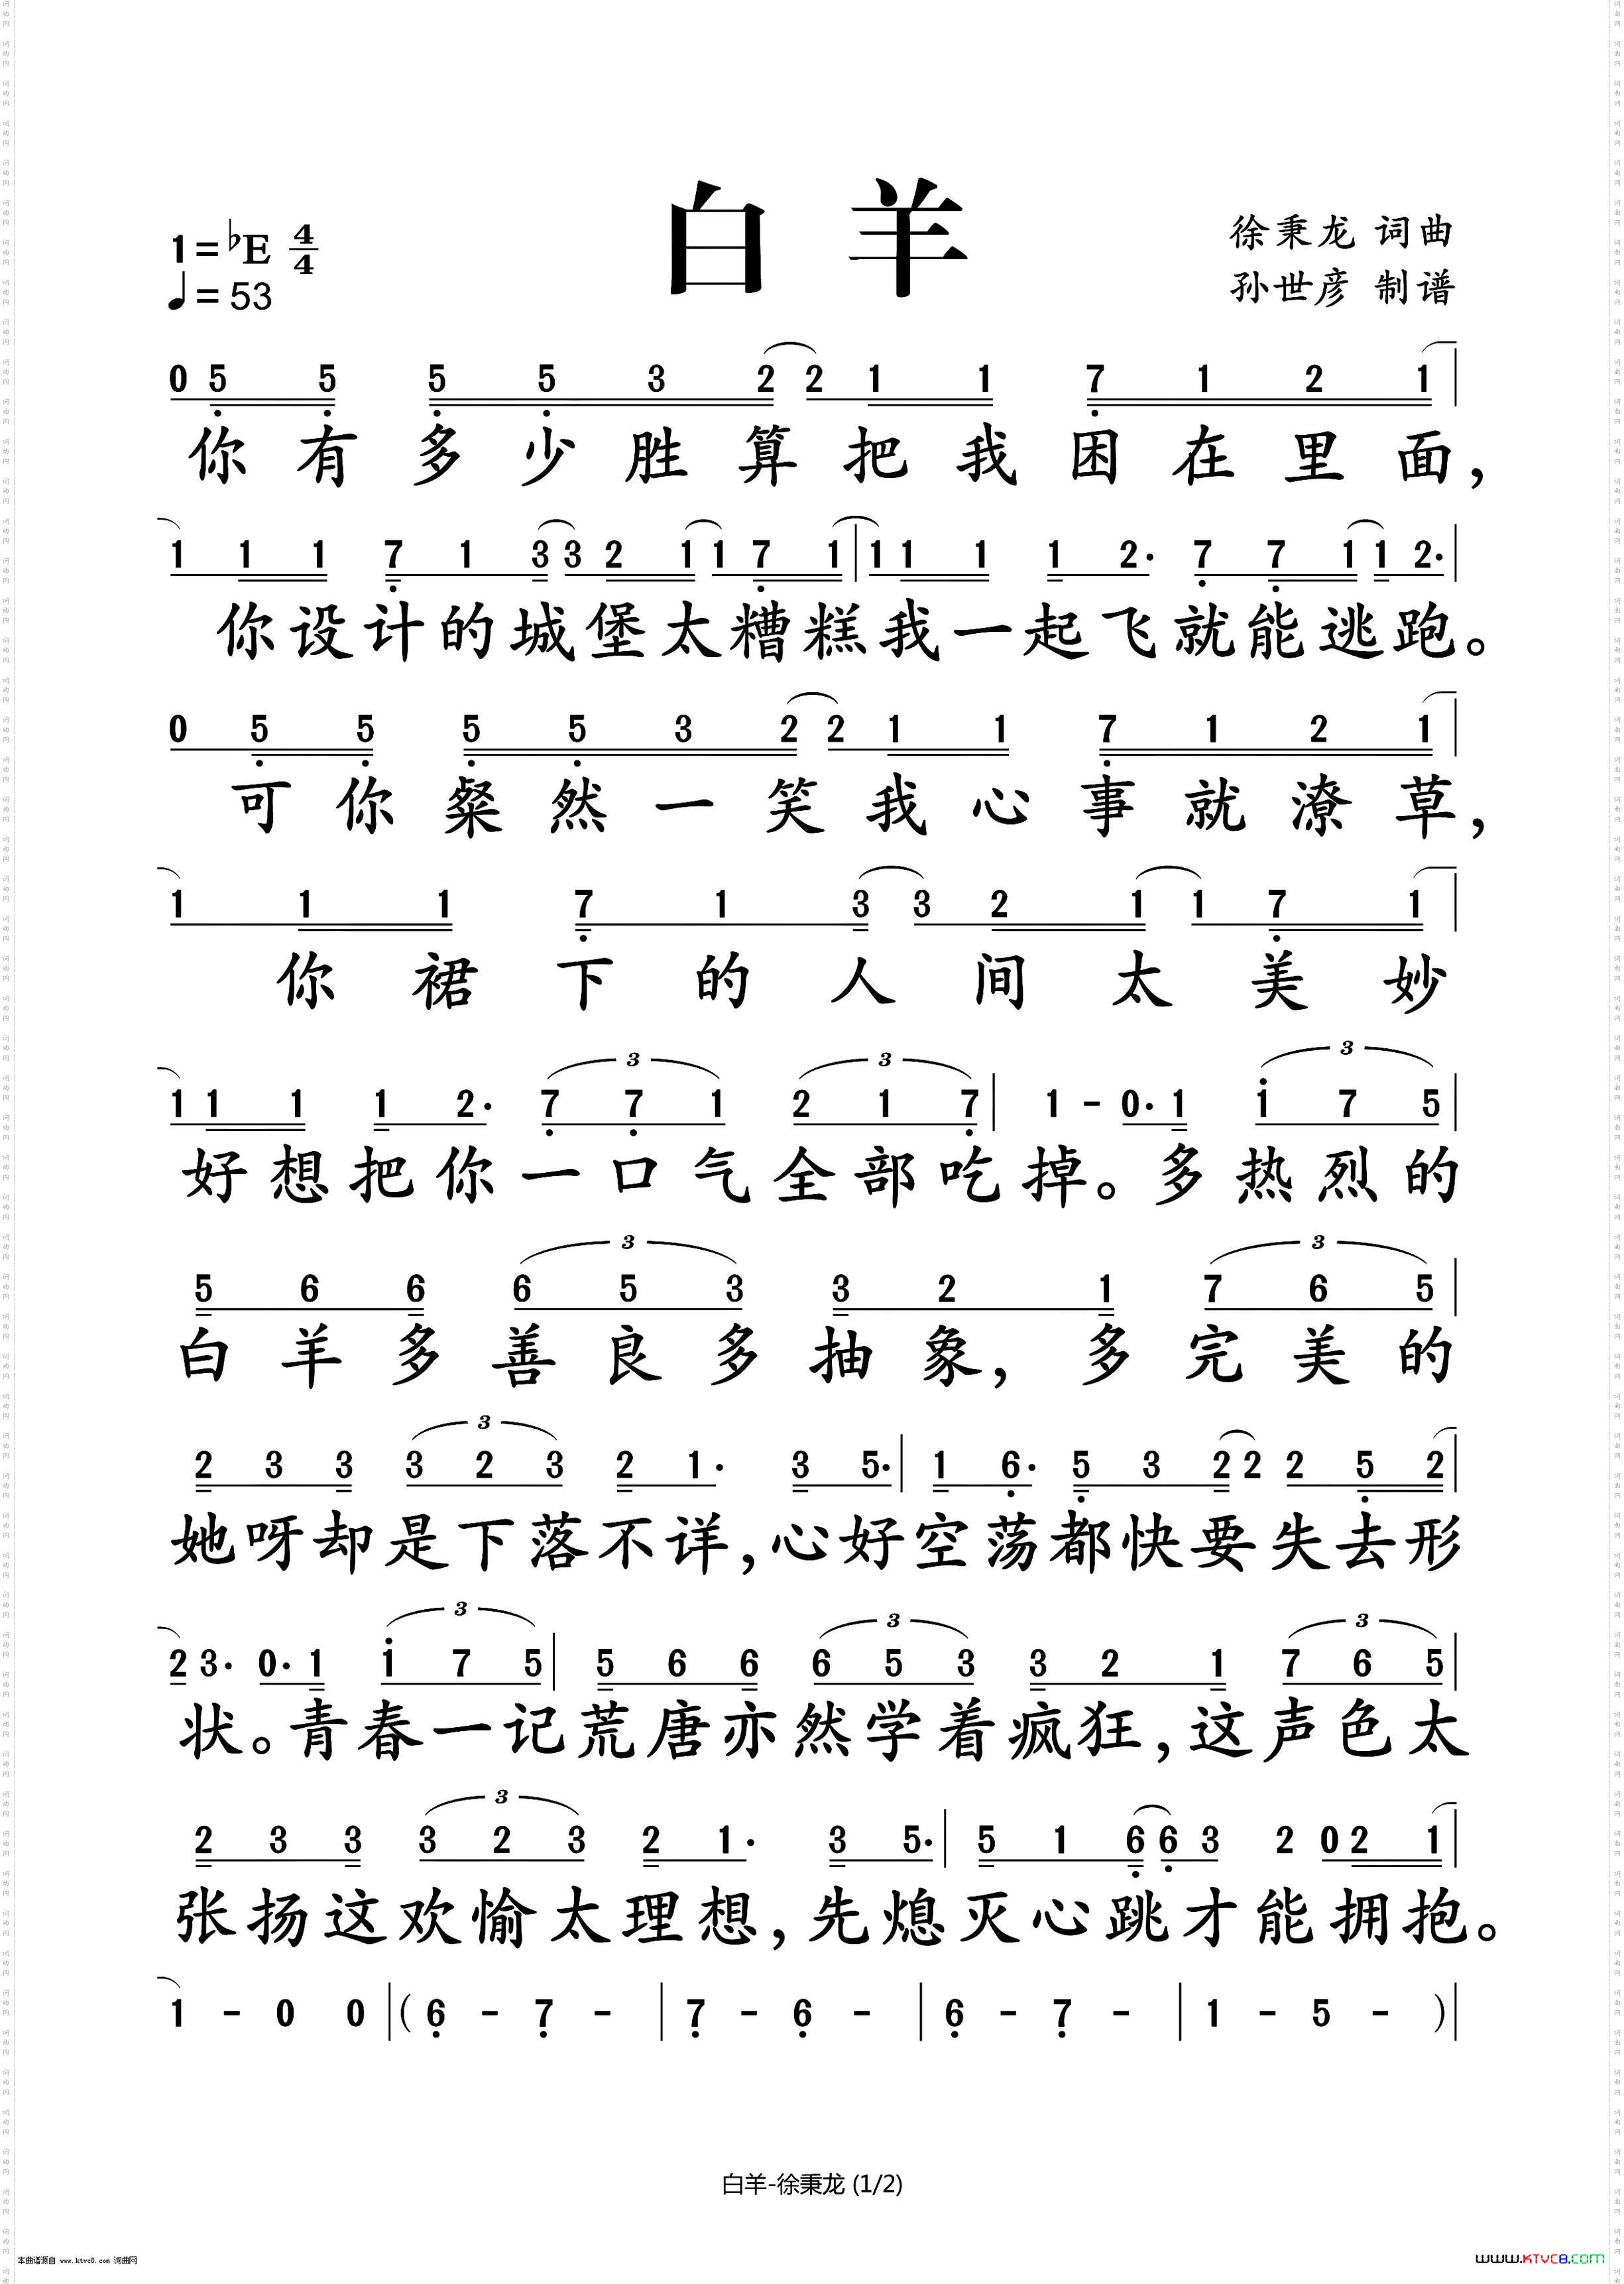 白 羊
1=♭E 4/4
♩=53
徐秉龙 词曲
孙世彦 制谱
0 5 5 5 5 3 2 2 1 1 7 1 2 1
你有多少胜算把我困在里面，
1 1 1 7 1 3 3 2 1 1 7 1 | 1 1 1 1 2· 7 7 1 1 2· |
你设计的城堡太糟糕我一起飞就能逃跑。
0 5 5 5 5 3 2 2 1 1 7 1 2 1 |
可你粲然一笑我心事就潦草，
1 1 1 7 1 3 3 2 1 1 7 1 |
你裙下的人间太美妙
1 1 1 1 2· 7 7 1 2 1 7 | 1 - 0· 1 1 7 5 |
好想把你一口气全部吃掉。多热烈的
5 6 6 6 5 3 3 2 1 7 6 5 |
白羊多善良多抽象，多完美的
2 3 3 3 2 3 2 1· 3 5· | 1 6· 5 3 2 2 2 5 2 |
她呀却是下落不详，心好空荡都快要失去形
2 3· 0· 1 1 7 5 | 5 6 6 6 5 3 3 2 1 7 6 5 |
状。青春一记荒唐亦然学着疯狂，这声色太
2 3 3 3 2 3 2 1· 3 5· | 5 1 6 6 3 2 0 2 1 |
张扬这欢愉太理想，先熄灭心跳才能拥抱。
1 - 0 0 | ( 6 - 7 - | 7 - 6 - | 6 - 7 - | 1 - 5 - ) |
白羊-徐秉龙 (1/2)
本曲谱源自 www.ktvc8.com 词曲网
www.KTVC8.com